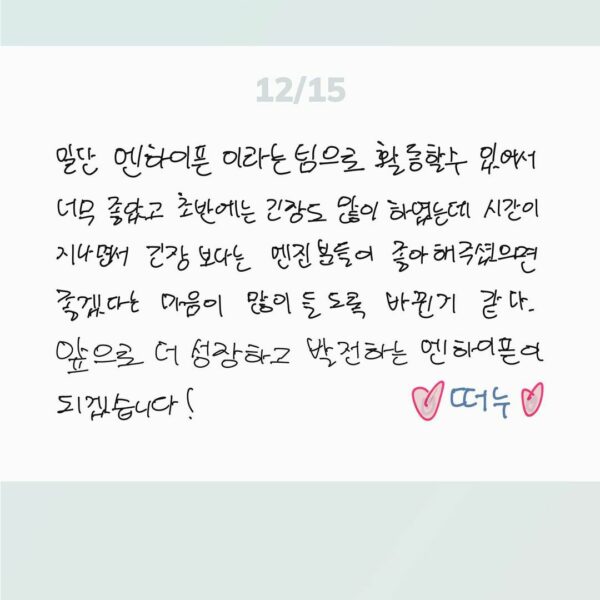 12/15
일단 엔하이픈 이라는 팀으로 활동할수 있어서
너무 좋았고 초반에는 긴장도 많이 하였는데 시간이
지나면서 긴장 보다는 엔진분들이 좋아해주셨으면
좋겠다는 마음이 많이 들도록 바뀐거 같다.
앞으로 더 성장하고 발전하는 엔하이픈이
되겠습니다!
떠누